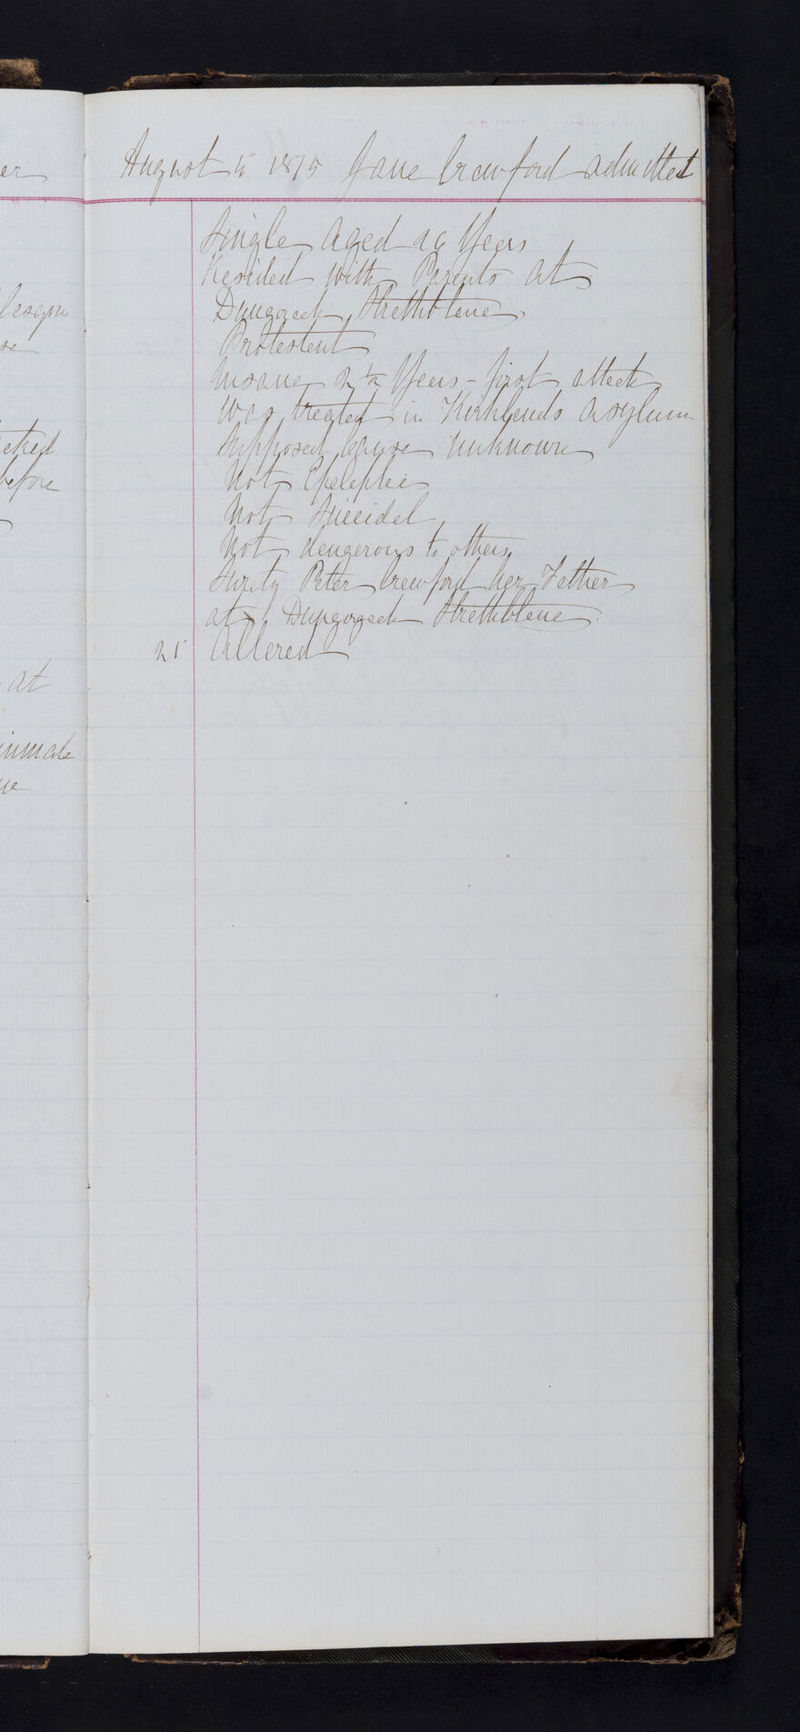 er
August 5 1875 Jane Crawford admitted
Single Aged 26 Years
Resided with Parents at
Dungoyach Strathblane
Protestant
Insane 2 ½ Years - first attack
Was treated in Kirklands Asylum
Supposed Cause unknown
Not Epeleptic
Not Suicidal
Not dangerous to others
Surity Peter Crawford her Father
at Dungoyach Strathblane
25 Altered
before
at
inmate